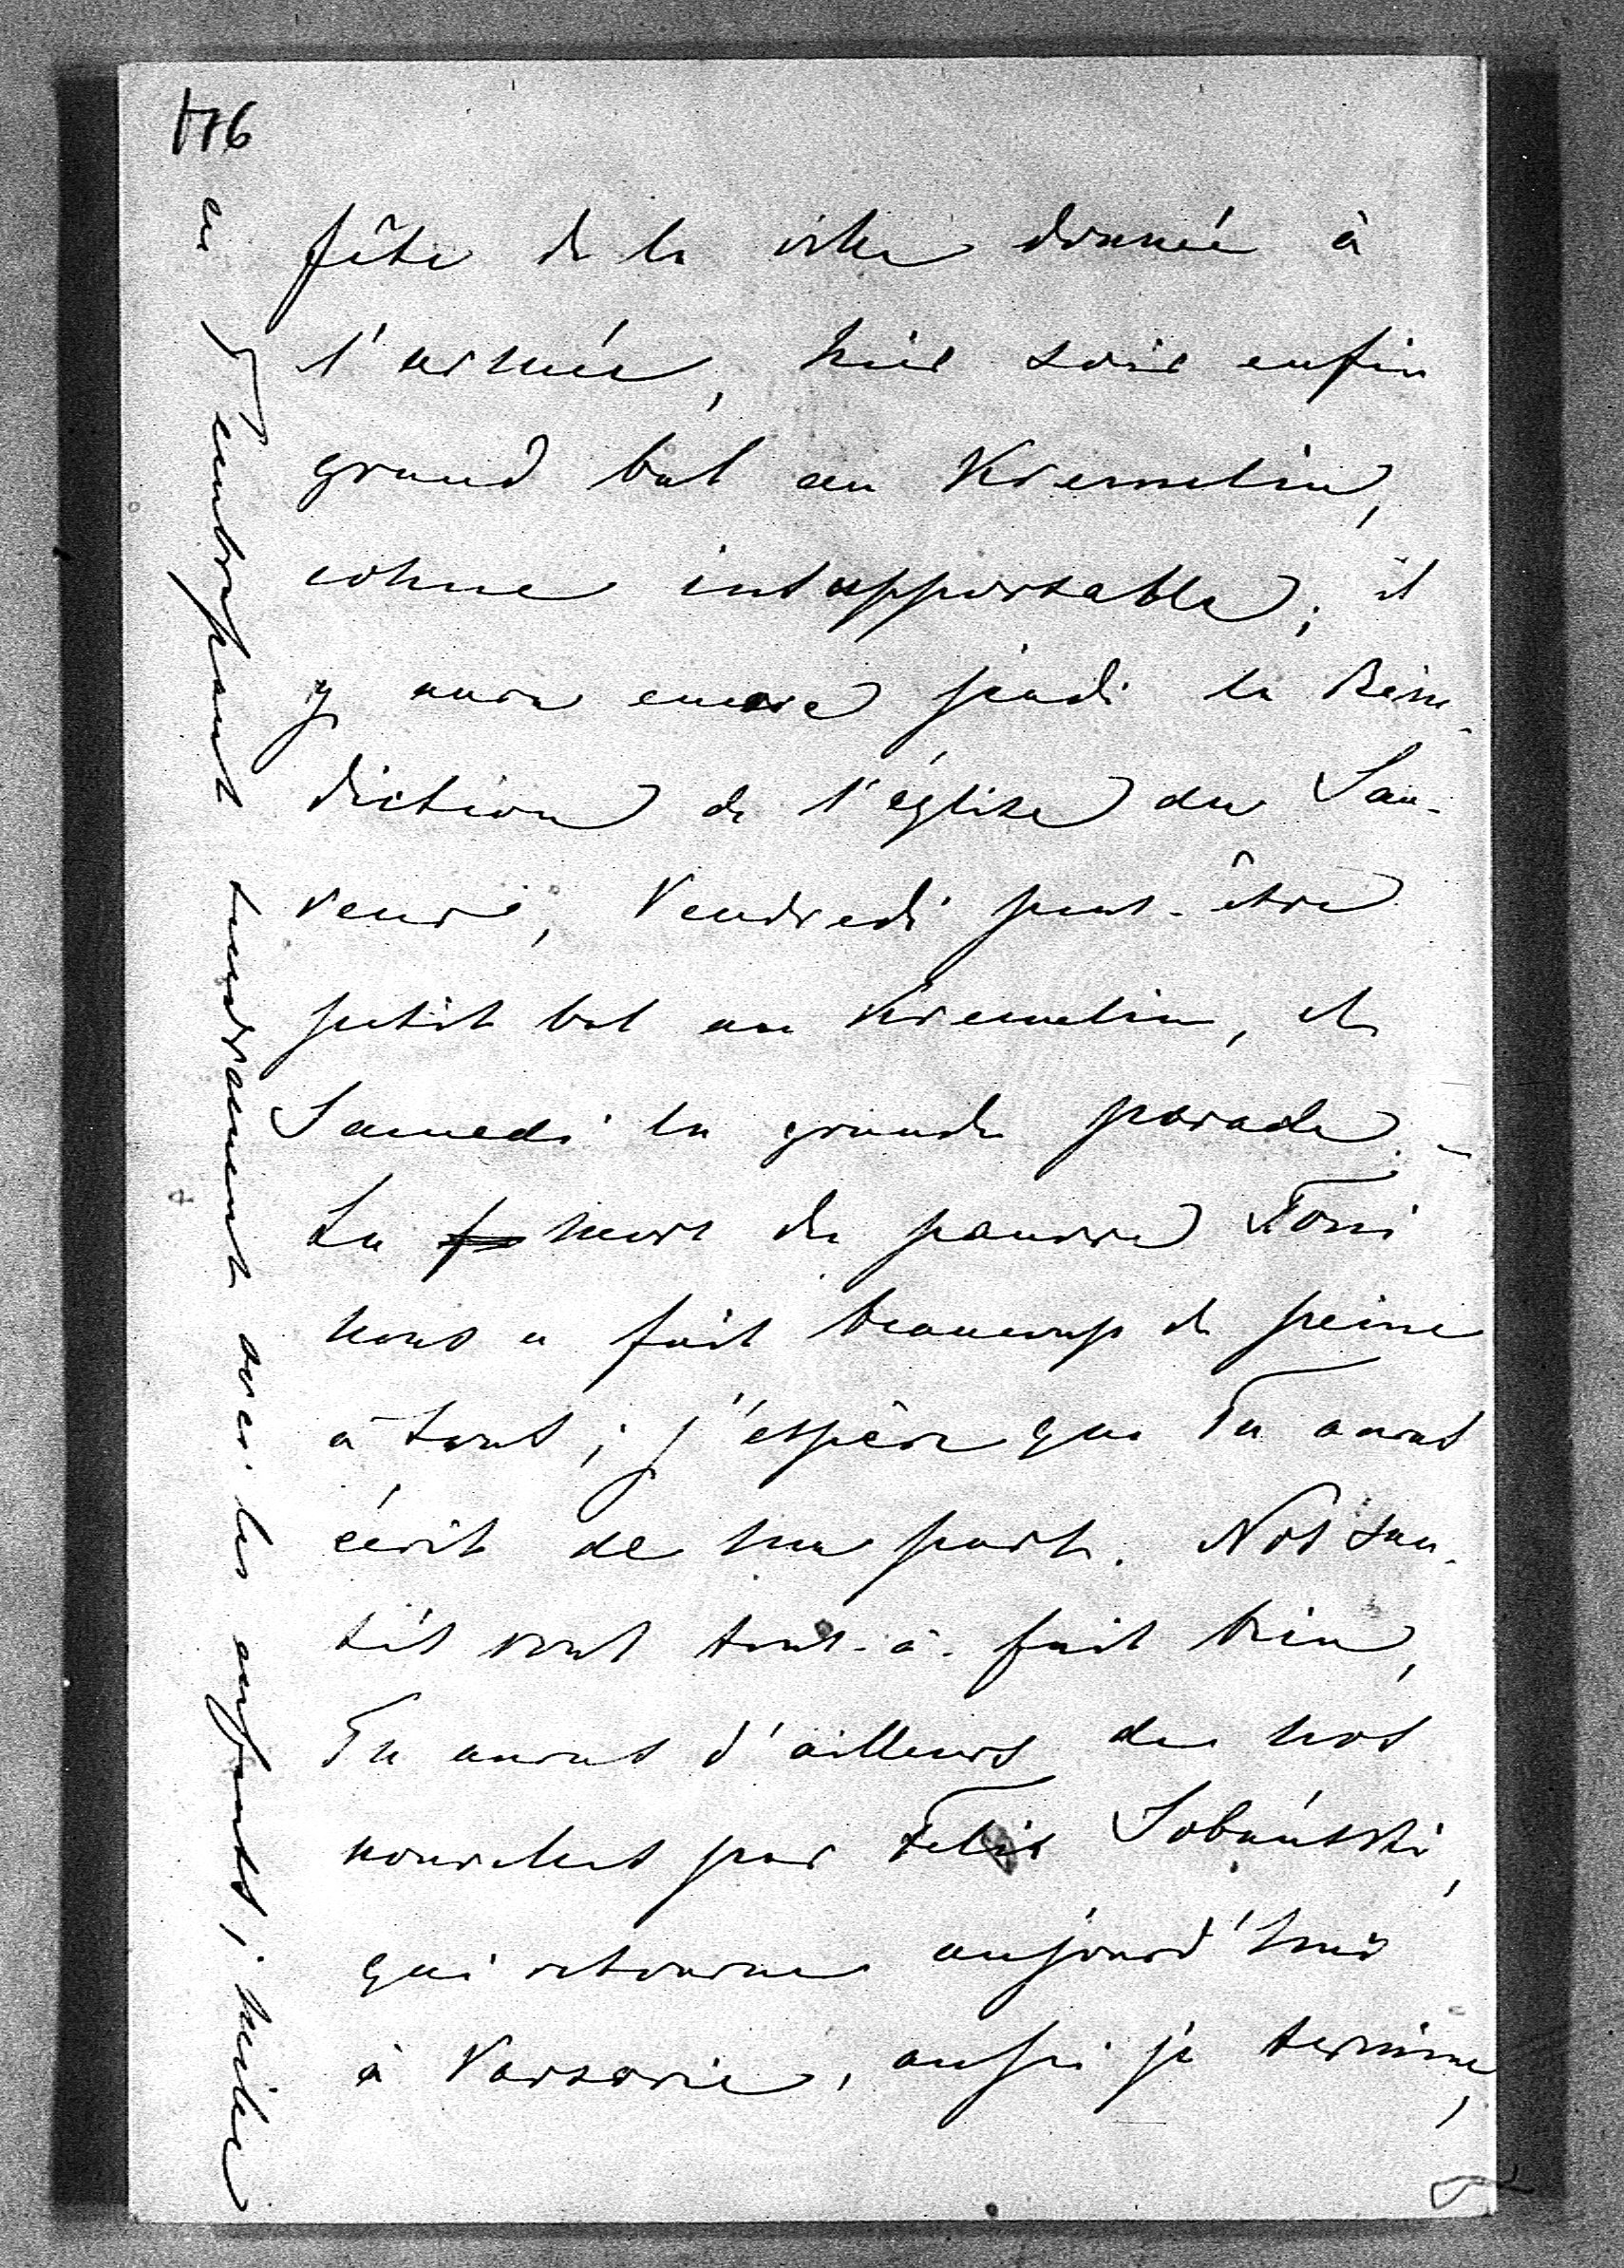 116
fête de la ville donnée à
l'armée, hier soir enfin
grand bal au Kremelin,
cohue insupportable; il
y aura encore jeudi la Béné-
diction de l'église du Sau-
veur, Vendredi peut-être
petit bal au Kremelin, et
Samedi la grande parade. –
La mort du pauvre Toni
nous a fait beaucoup de peine
à tous; j'espère que Tu auras
écrit de ma part. Nos san-
tés vont tout-à-fait bien,
Tu auras d'ailleurs de nos
nouvelles par Felix Sobański,
qui retourne aujourd'hui
à Varsovie, aussi je termine,
en T'embrassant tendrement avec les enfants; mille